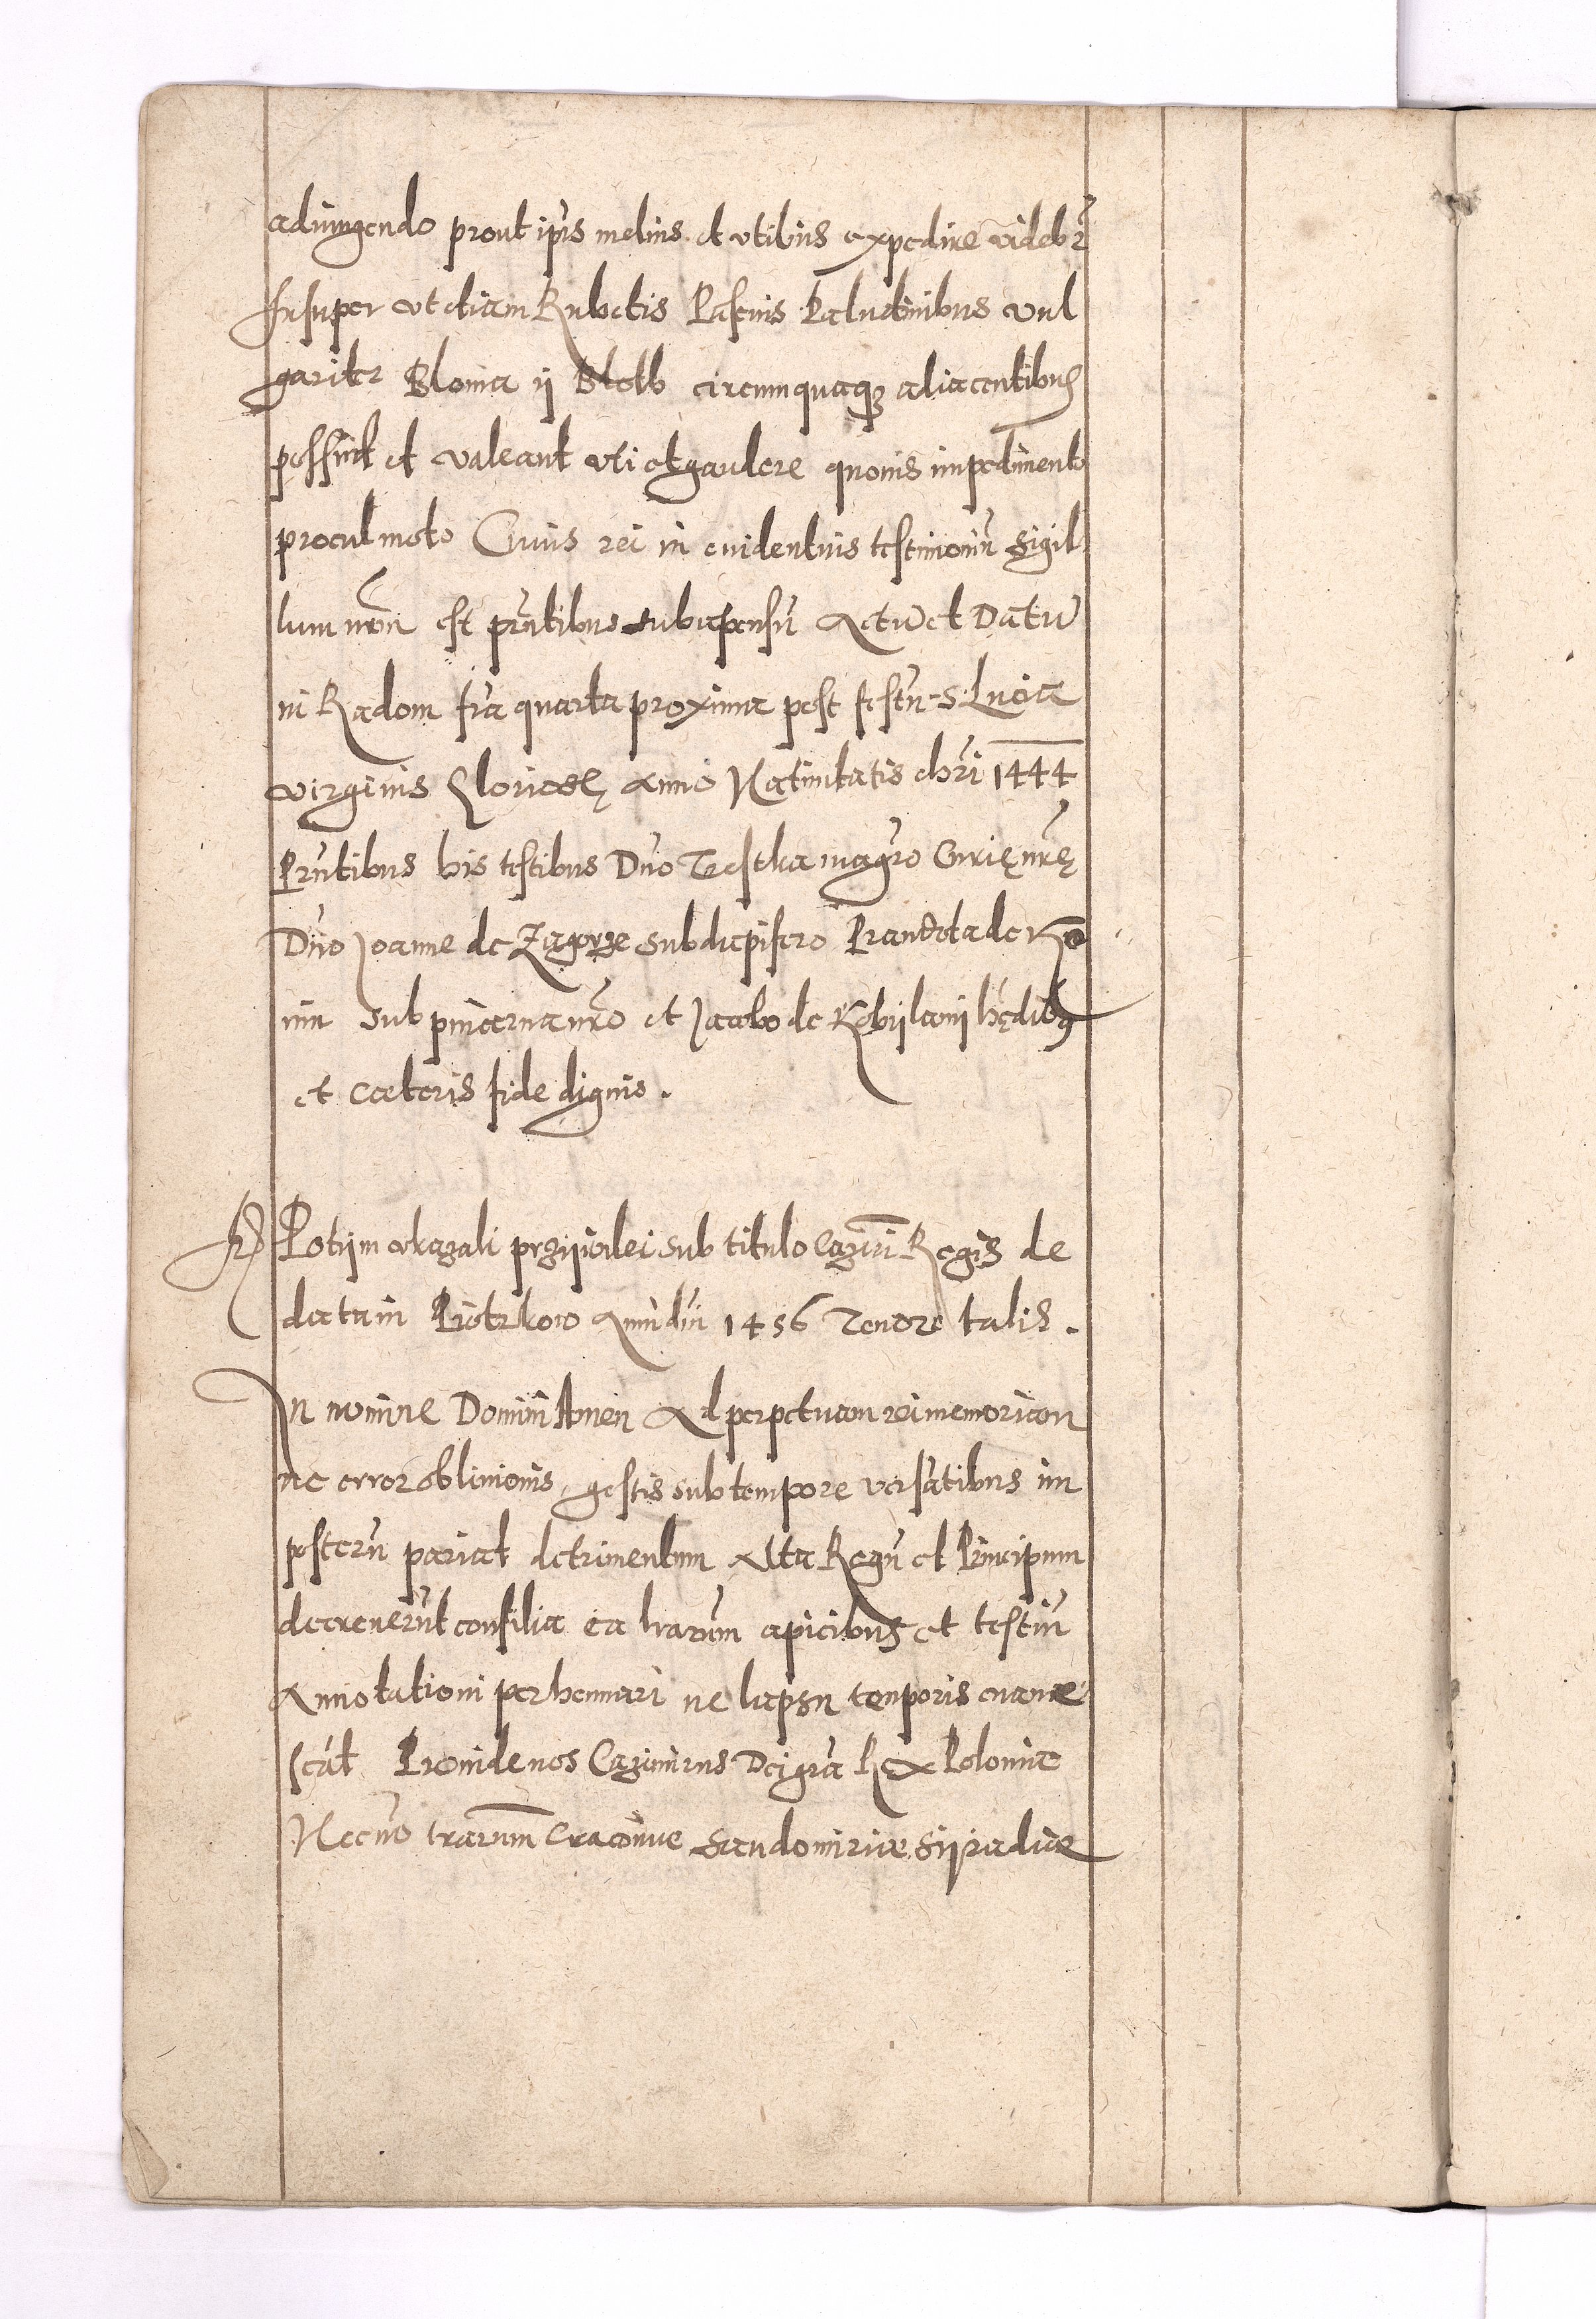 adiungendo prout ipīs melius et vtilius expedire videbr̄
Insuper vt etiam Rubetis Pascuis Paludinibus vul
gariter Blonia ij Blotto circumquaqꝫ adiacentibus
possint et valeant vti et gaudere quouis impedimento
procul moto Cuius rei in euidentius testimoniū sigil
lum nrm̄ est pn̄tibus subappensū Actū et Datū
in Radom fr̄ia quarta proxima post festū S. Lucia
virginis Gloriosę Anno Natiuitatis chrī 1444
Prn̄tibus his testibus Dn̄o Trestka magr̄o Curię nr̄ę
Dn̄o Joanne de Zagorze subdapifero Prandota de Ko
nin sub pincerna nr̄o et Jacobo de Kobijlanij hędibꝰ
et cœteris fide dignis.
Potijm okazali przijwilei sub titulo Cazim̄ri Regis de
data in Piotrkow Ann dni 1456 Tenore talis.
In nomine Domini Amen Ad perpetuam rei memoriam
ne error obliuionis gestis sub tempore versātibus im
posterū pariat detrimentum Alta Regū et Principum
decreuerūt consilia ea lrarum apicibus et testiū
Annotationi perhennari ne lapsu temporis euane
scāt Proinde nos Cazimirus Dei gra Rex Poloniae
Necnō trarum Cracouiae Sandomiriae Sijradiae